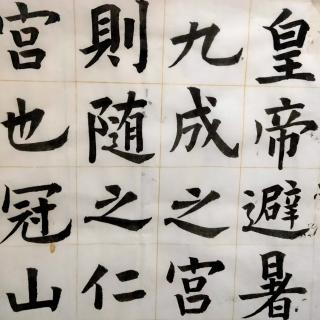 皇帝避暑
九成之宮
則随之仁
宮也冠山